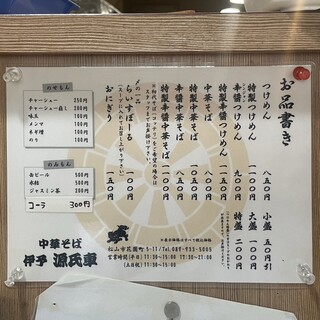 お品書き
つけめん 八五〇
特製つけめん 一一〇〇
辛醤つけめん 九〇〇
特製辛醤つけめん 一一五〇
中華そば 八〇〇
特製中華そば
辛醤中華そば
特製辛醤中華そば
小盛 五〇円引
大盛 一〇〇
特盛 二〇〇
〆の一品
らいすぼーる 一〇〇
(スープに入れてお召し上がり下さい)
おにぎり 一五〇
のせもん
チャーシュー 250円
チャーシュー増し 200円
味玉 100円
メンマ 100円
ネギ増 100円
のり 100円
のみもん
缶ビール 500円
氷結 500円
ジャスミン茶 200円
コーラ 300円
中華そば
伊予 源氏車
松山市花園町5-11/Tel.089-933-5005
営業時間(平日)11:30-15:00/17:30-21:00
(土日祝)11:30-15:30